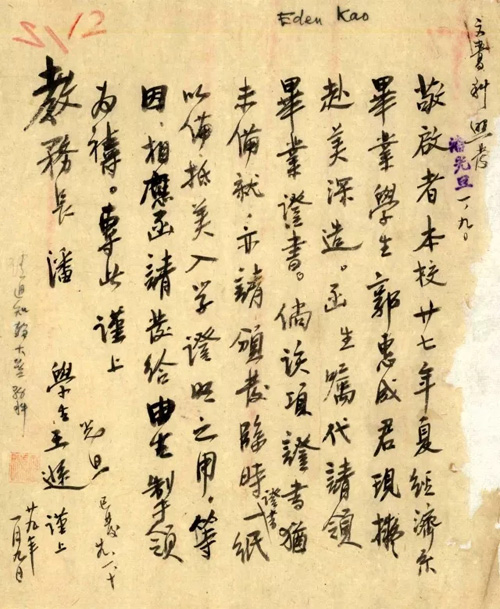 Eden Kao
文書科照發
潘光旦 一、九。
敬啟者本校廿七年夏經濟系
畢業學生郭惠成君現擬
赴美深造。函生囑代請領
畢業證書。倘該項證書猶
未備就,亦請頒發臨時證書一紙
以備抵美入学證明之用。等
因,相應函請發給由生
為禱。專此 謹上
教務長潘 光旦
學生 謹上
廿九年
一月九日